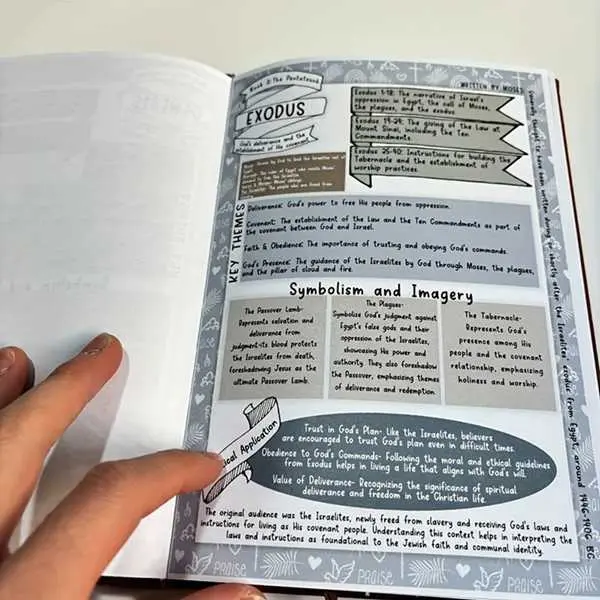 Book 2: The Pentateuch
EXODUS
God's deliverance and the
establishment of His covenant
WRITTEN BY MOSES
Exodus 1-18: The narrative of Israel's
oppression in Egypt, the call of Moses,
the plagues, and the exodus
Exodus 19-24: The giving of the Law at
Mount Sinai, including the Ten
Commandments
Exodus 25-40: Instructions for building the
Tabernacle and the establishment of
worship practices.
KEY THEMES
Deliverance: God's power to free His people from oppression.
Covenant: The establishment of the Law and the Ten Commandments as part of
the covenant between God and Israel.
Faith & Obedience: The importance of trusting and obeying God's commands.
God's Presence: The guidance of the Israelites by God through Moses, the plagues,
and the pillar of cloud and fire.
Symbolism and Imagery
The Passover Lamb-
Represents salvation and
deliverance from
judgment-its blood protects
the Israelites from death,
foreshadowing Jesus as the
ultimate Passover Lamb.
The Plagues-
Symbolize God's judgment against
Egypt's false gods and their
oppression of the Israelites,
showcasing His power and
authority. They also foreshadow
the Passover, emphasizing themes
of deliverance and redemption.
The Tabernacle-
Represents God's
presence among His
people and the covenant
relationship, emphasizing
holiness and worship.
ical Application
Trust in God's Plan- Like the Israelites, believers
are encouraged to trust God's plan even in difficult times.
Obedience to God's Commands- Following the moral and ethical guidelines
from Exodus helps in living a life that aligns with God's will.
Value of Deliverance- Recognizing the significance of spiritual
deliverance and freedom in the Christian life.
The original audience was the Israelites, newly freed from slavery and receiving God's laws and
instructions for living as His covenant people. Understanding this context helps in interpreting the
laws and instructions as foundational to the Jewish faith and communal identity.
thought to have been written during or shortly after the Israelites' exodus from Egypt, around 1446-1406 BC
PRAISE
PRAISE
PRAISE